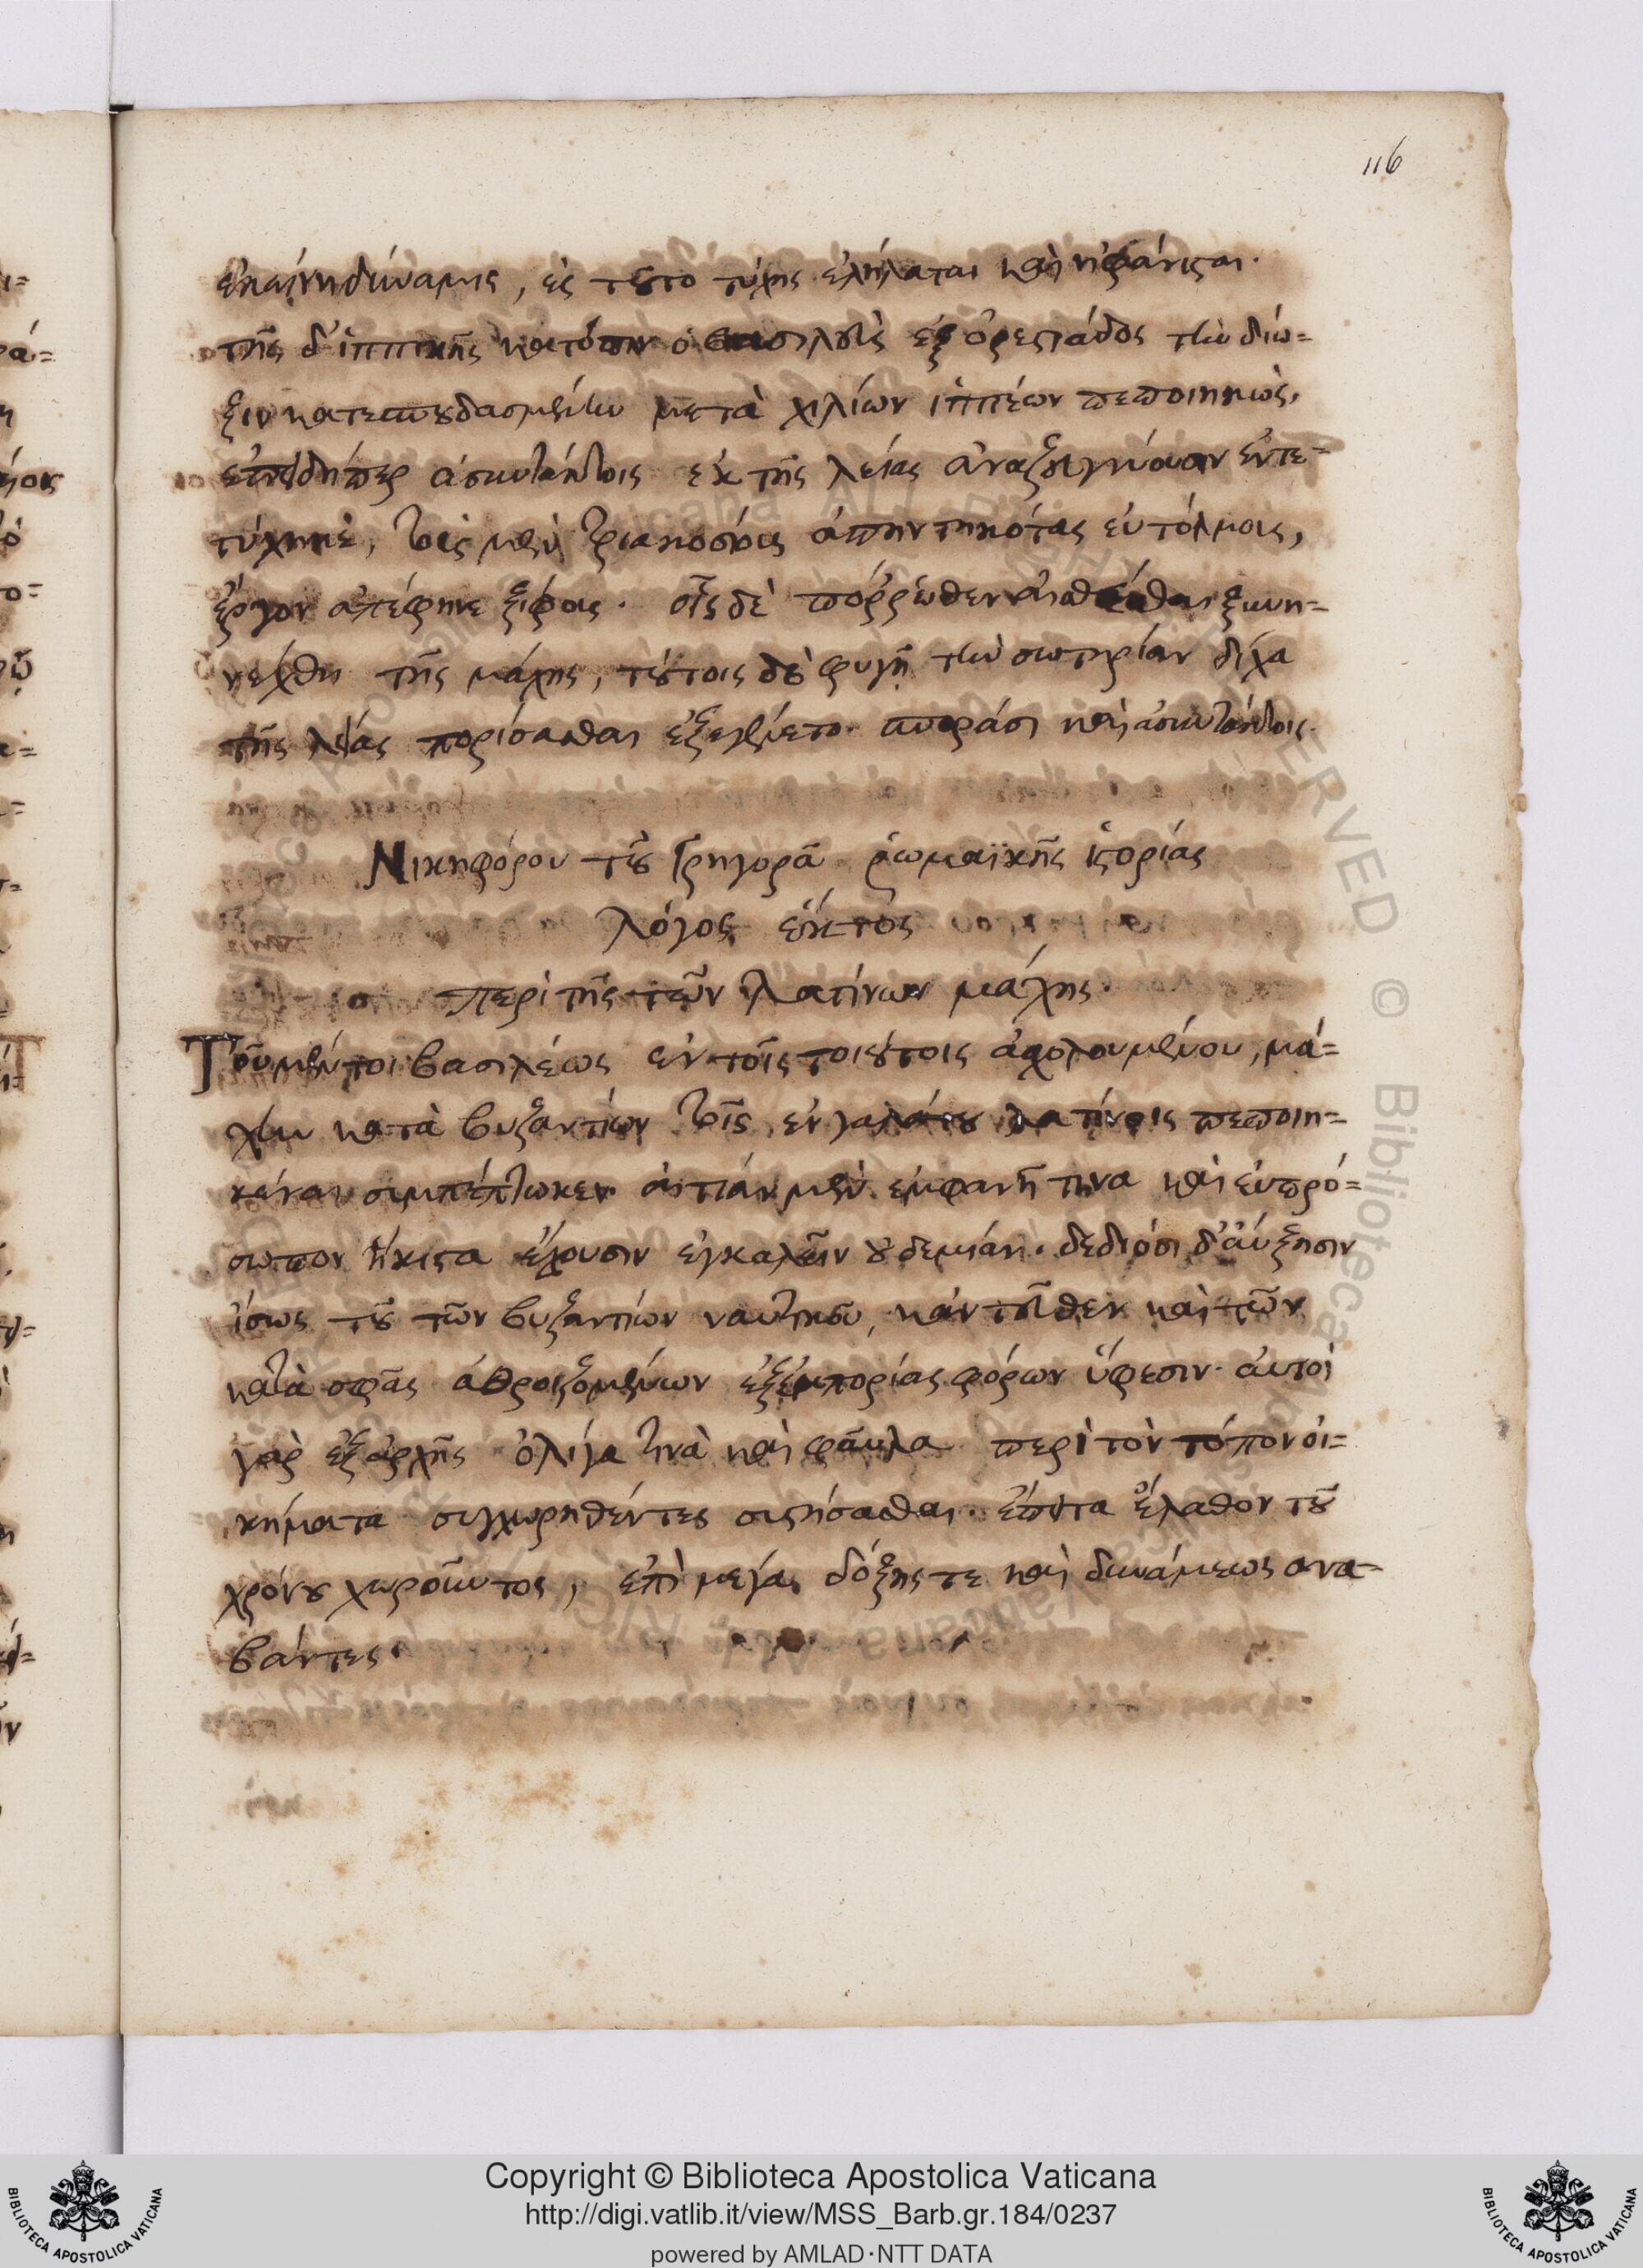 116
ἐκείνη δύναμις, ἐς τοῦτο τύχης ἐλήλαται καὶ ἠφάνισται.
τῆς δ' ἱππικῆς κατόπιν ὁ βασιλεὺς ἐξ ὀρεστάδος τὴν δίω=
ξιν κατεσπουδασμένην μετὰ χιλίων ἱππέων πεποιηκὼς,
ἐπειδήπερ ἀσκυλεύτοις ἐκ τῆς λείας ἀναζευγνύουσιν ἐντε=
τύχηκε, τοὺς μὲν τριακοσίοις ἀπηντηκότας εὐτόλμοις,
ἔργον ἀπέφηνε ξίφους. οἷς δὲ πόρρωθεν αἰσθέσθαι ξυνη=
νέχθη τῆς μάχης, τούτοις δὲ φυγῇ τὴν σωτηρίαν δίχα
τῆς λείας πορίσασθαι ἐξεγένετο. σποράσι καὶ ἀσκυλεύτοις.
Νικηφόρου τοῦ Γρηγορᾶ ῥωμαϊκῆς ἱστορίας
λόγος ἕκτος
περὶ τῆς τῶν λατίνων μάχης.
Τοῦ μέντοι βασιλέως ἐν τοῖς τοιούτοις ἀσχολουμένου, μά=
χην κατὰ βυζαντίων τοῖς ἐν γαλάτου λατίνοις πεποιη=
κέναι συμπέπτωκεν. αἰτίαν μὲν ἐμφανῆ τινα καὶ εὐπρό=
σωπον ἥκιστα ἔχουσιν ἐγκαλεῖν οὐδεμίαν. δεδιόσι δ' αὔξησιν
ἴσως τοῦ τῶν βυζαντίων ναυτικοῦ, κἀντεῦθεν καὶ τῶν
κατὰ σφᾶς ἀθροιζομένων ἐξ ἐμπορίας φόρων ὕφεσιν. αὐτοὶ
γὰρ ἐξ ἀρχῆς ὀλίγα τινὰ καὶ φαῦλα περὶ τὸν τόπον οἰ=
κήματα συγχωρηθέντες συστήσασθαι. ἔπειτα ἔλαθον τοῦ
χρόνου χωροῦντος, ἐπὶ μέγα δόξης τε καὶ δυνάμεως ἀνα=
βάντες.
Copyright © Biblioteca Apostolica Vaticana
http://digi.vatlib.it/view/MSS_Barb.gr.184/0237
powered by AMLAD·NTT DATA